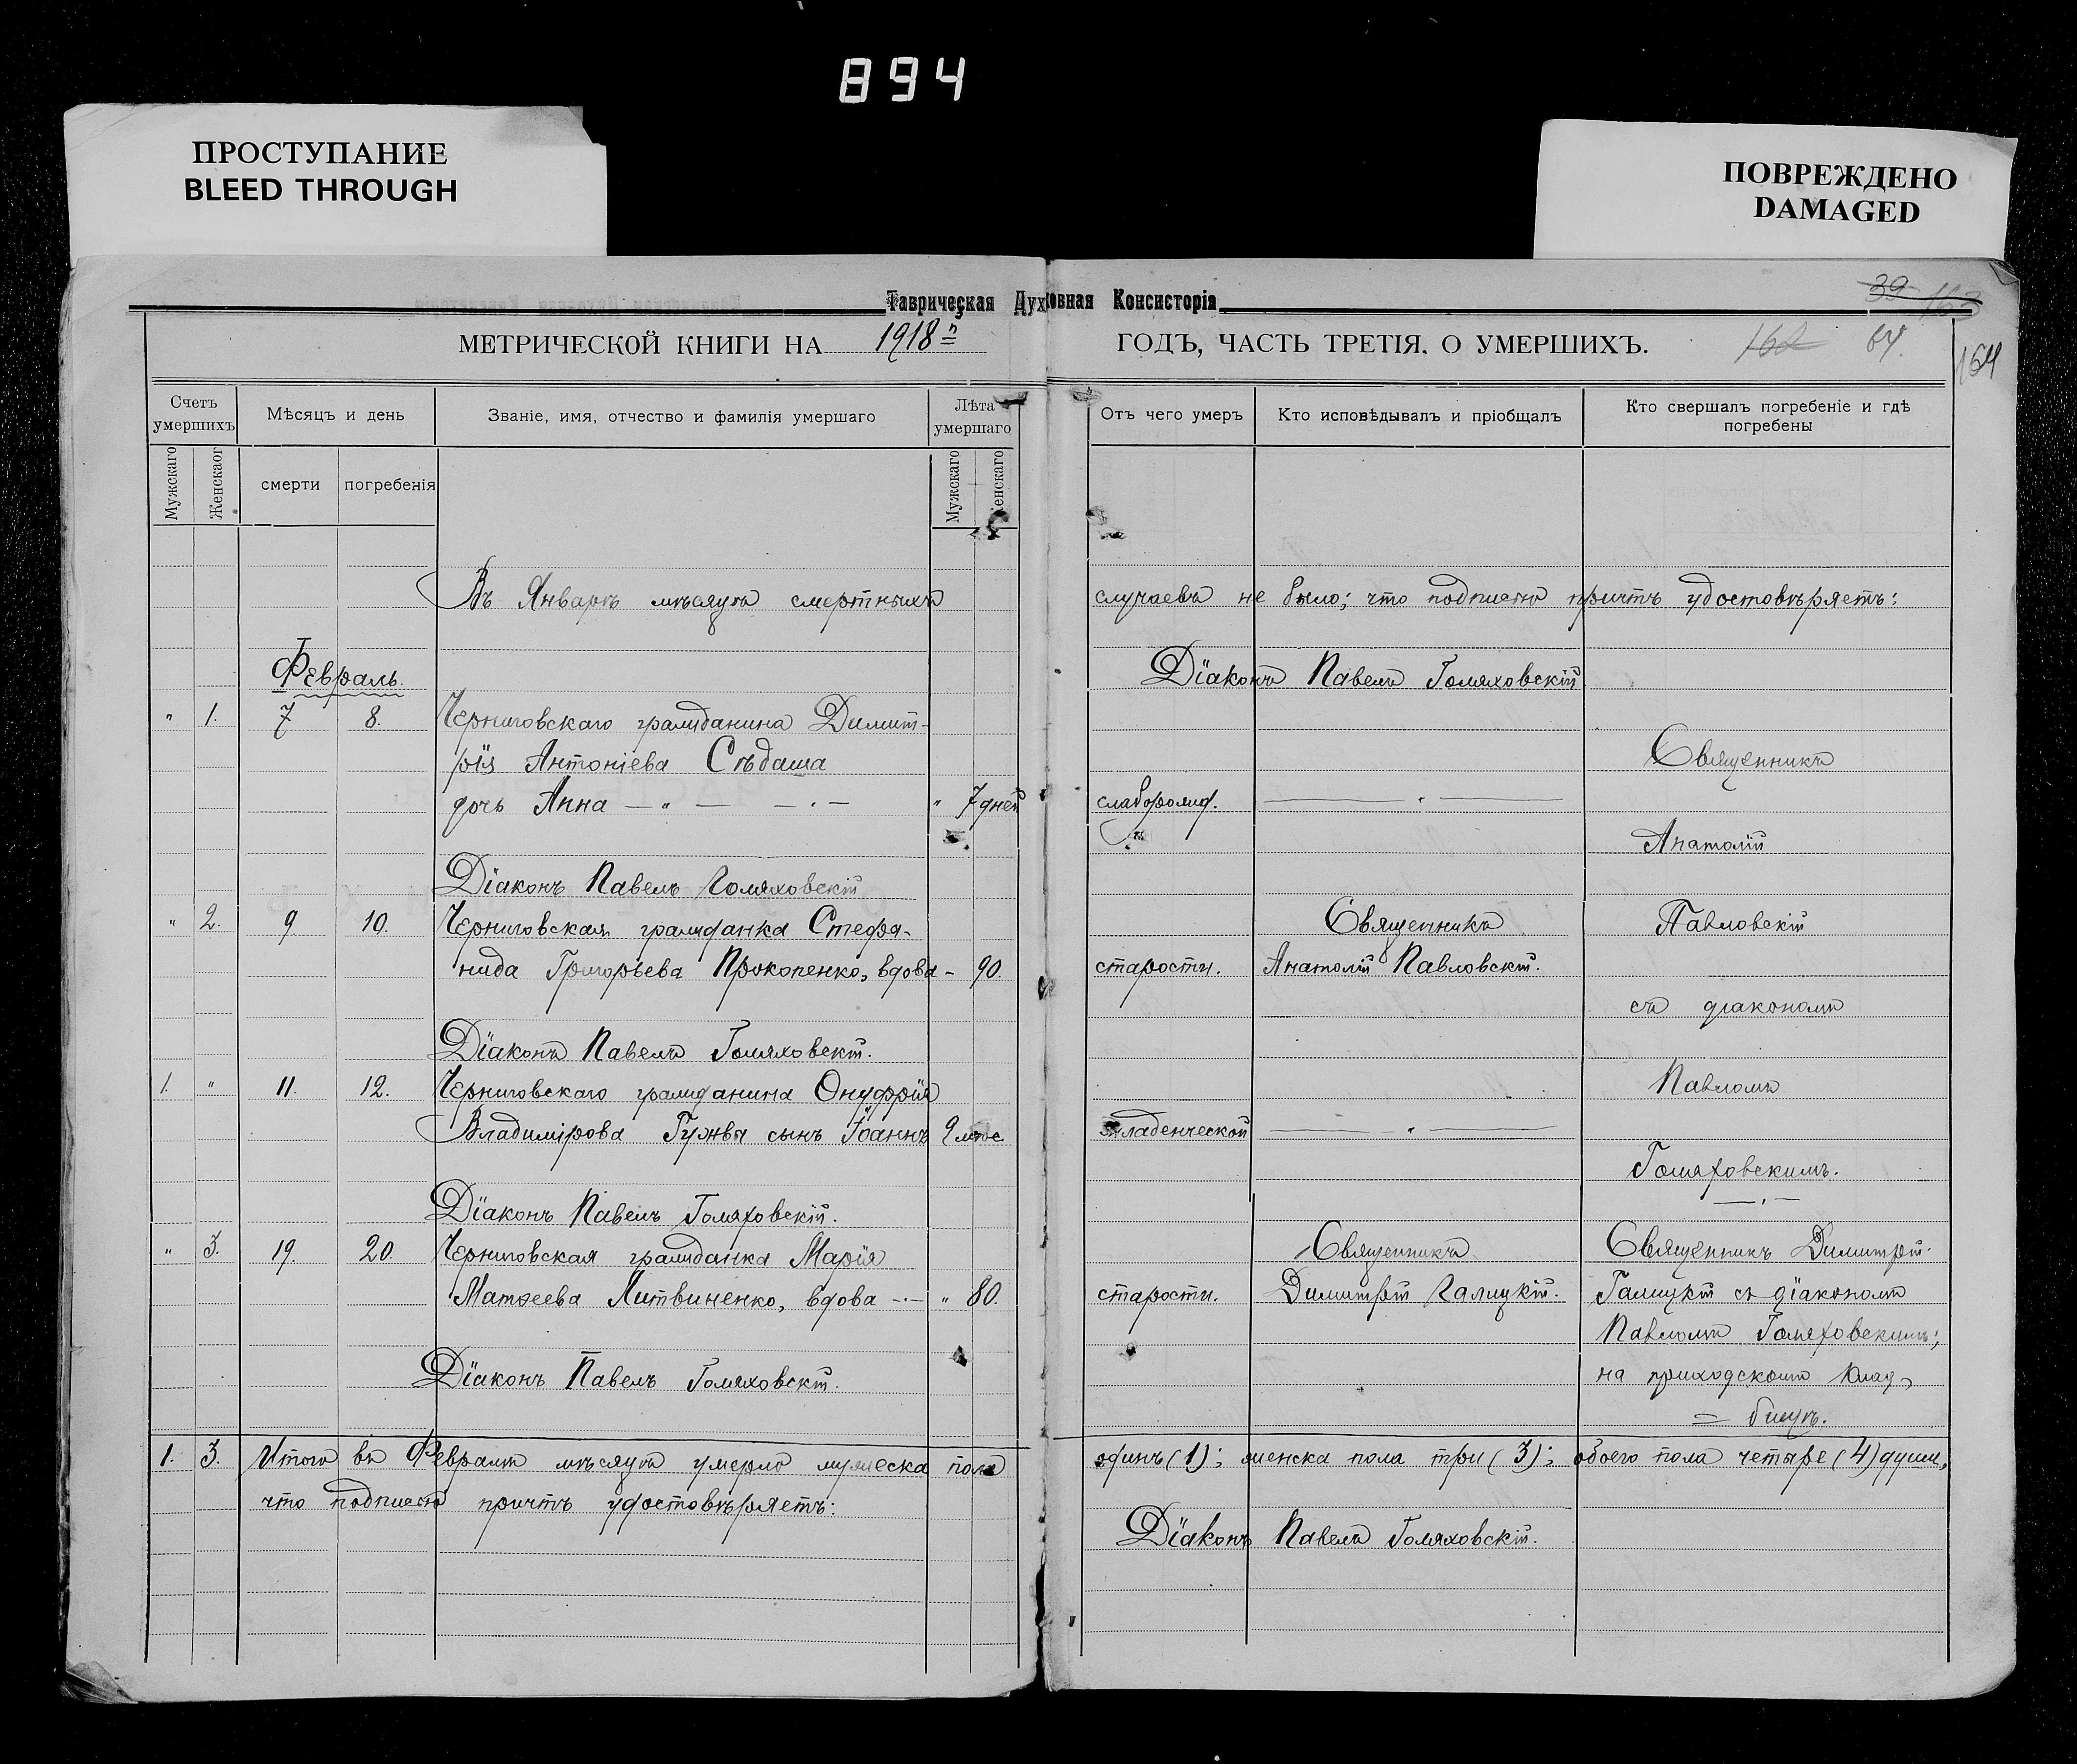 894
ПРОСТУПАНИЕ
BLEED THROUGH
ПОВРЕЖДЕНО
DAMAGED
Таврическая Духовная Консисторія
39 163
МЕТРИЧЕСКОЙ КНИГИ НА 1918 ГОДЪ, ЧАСТЬ ТРЕТІЯ, О УМЕРШИХЪ.
162 64. 164
Счетъ умершихъ
Мѣсяцъ и день
Званіе, имя, отчество и фамилія умершаго
Лѣта умершаго
Отъ чего умеръ
Кто исповѣдывалъ и пріобщалъ
Кто свершалъ погребеніе и гдѣ погребены
Мужскаго
Женскаог
смерти
погребенія
Мужскаго
Женскаго
Въ Январѣ мѣсяцѣ смертныхъ случаевъ не было; что подписью причтъ удостовѣряетъ:
Діаконъ Павелъ Голяховскій
Февраль.
" 1. 7 8. Черниговскаго гражданина Димит-
рія Антоніева Сѣдаша
дочь Анна — " — — . — " 7 дней слаборожд. — " —
Діаконъ Павелъ Голяховскій
" 2. 9 10. Черниговская гражданка Стефа-
нида Григорьева Прокопенко, вдова - 90. старости. Священникъ
Анатолій Павловскій.
Діаконъ Павелъ Голяховскій.
1. " 11. 12. Черниговскаго гражданина Онуфрія
Владимірова Гужвы сынъ Іоаннъ 9 мѣс. младенческой — " —
Діаконъ Павелъ Голяховскій.
Священникъ
Анатолій
Павловскій
съ діакономъ
Павломъ
Голяховскимъ.
" 3. 19. 20. Черниговская гражданка Марія
Матѳеева Литвиненко, вдова -.- " 80. старости. Священникъ
Димитрій Галицкій.
Священникъ Димитрій
Галицкій съ діакономъ
Павломъ Голяховскимъ;
на приходскомъ клад-
= бищѣ.
Діаконъ Павелъ Голяховскій.
1. 3. Итого въ Февралѣ мѣсяцѣ умерло мужеска пола одинъ (1); женска пола три (3); обоего пола четыре (4) души,
что подписью причтъ удостовѣряетъ:
Діаконъ Павелъ Голяховскій.